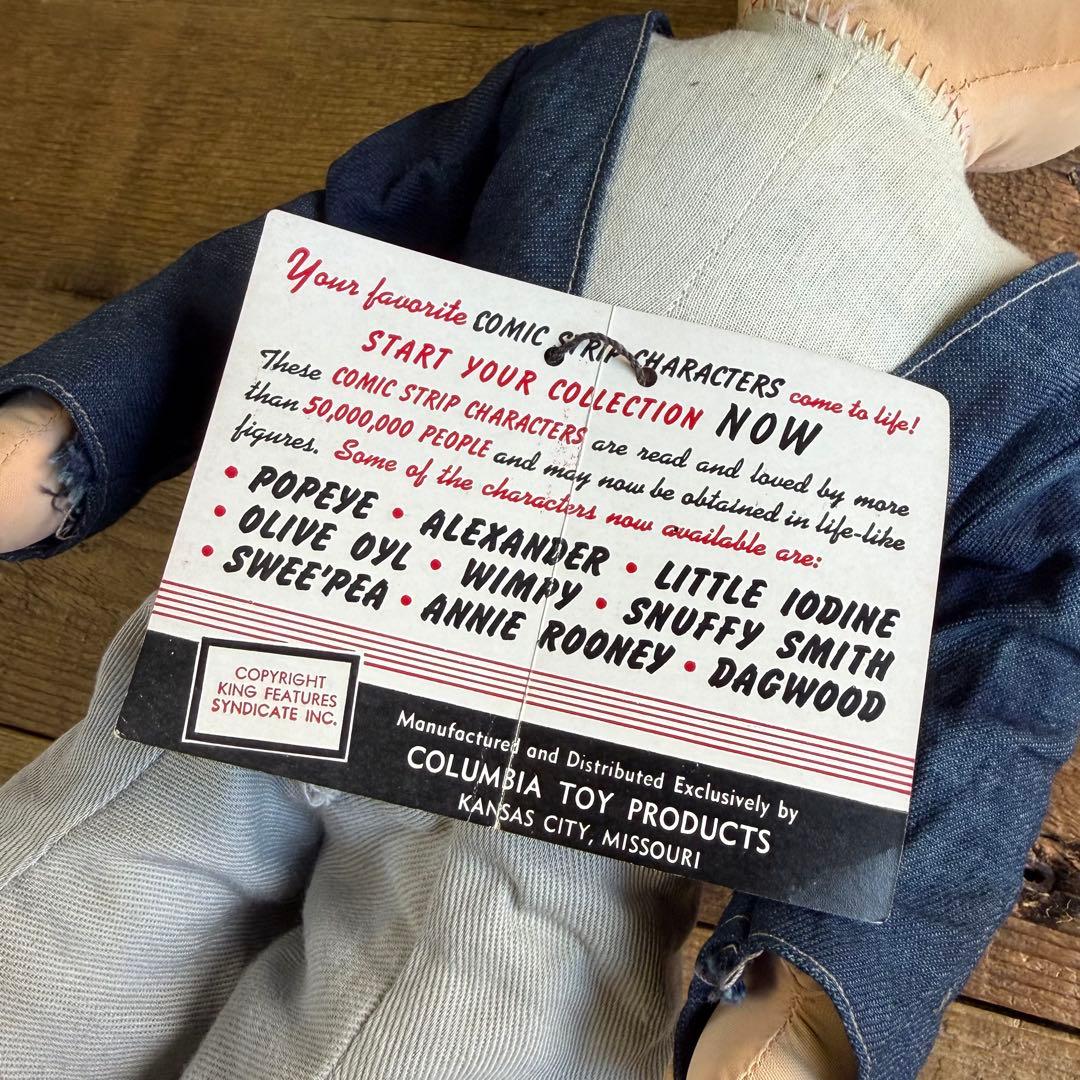 Your favorite COMIC STRIP CHARACTERS come to life!
START YOUR COLLECTION NOW
These COMIC STRIP CHARACTERS are read and loved by more
than 50,000,000 PEOPLE and may now be obtained in life-like
figures. Some of the characters now available are:
• POPEYE • ALEXANDER • LITTLE IODINE
• OLIVE OYL • WIMPY • SNUFFY SMITH
• SWEE'PEA • ANNIE ROONEY • DAGWOOD
COPYRIGHT
KING FEATURES
SYNDICATE INC.
Manufactured and Distributed Exclusively by
COLUMBIA TOY PRODUCTS
KANSAS CITY, MISSOURI